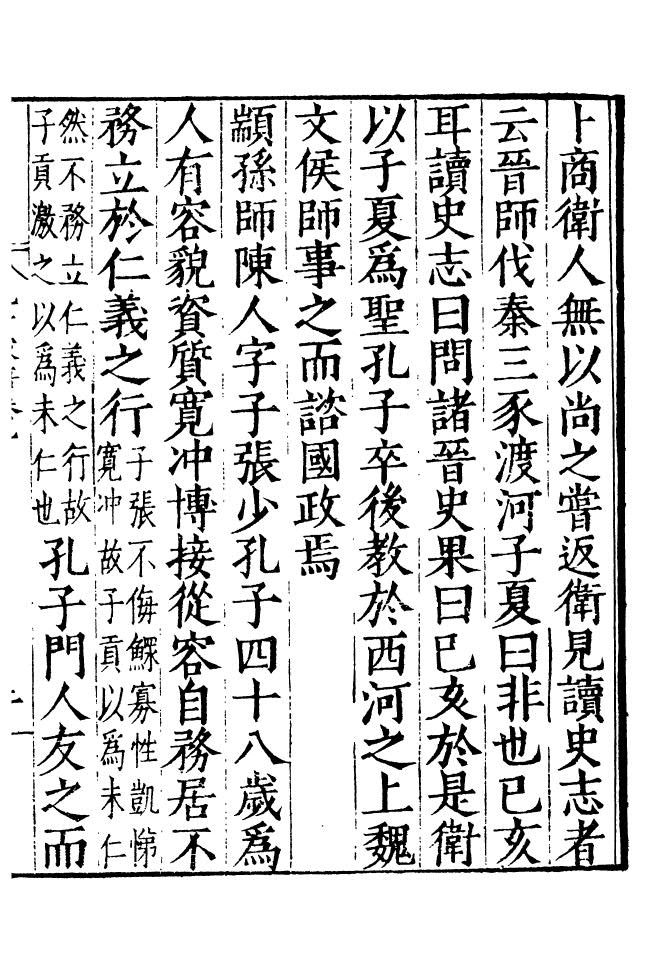 卜商衛人無以尚之嘗返衛見讀史志者
云晉師伐秦三豕渡河子夏曰非也已亥
耳讀史志曰問諸晉史果曰已亥於是衛
以子夏為聖孔子卒後教於西河之上魏
文侯師事之而諮國政焉
顓孫師陳人字子張少孔子四十八歲為
人有容貌資質寬冲博接從容自務居不
務立於仁義之行子張不侮鰥寡性凱悌
寬冲故子貢以為未仁
然不務立仁義之行故
子貢激之以為未仁也孔子門人友之而